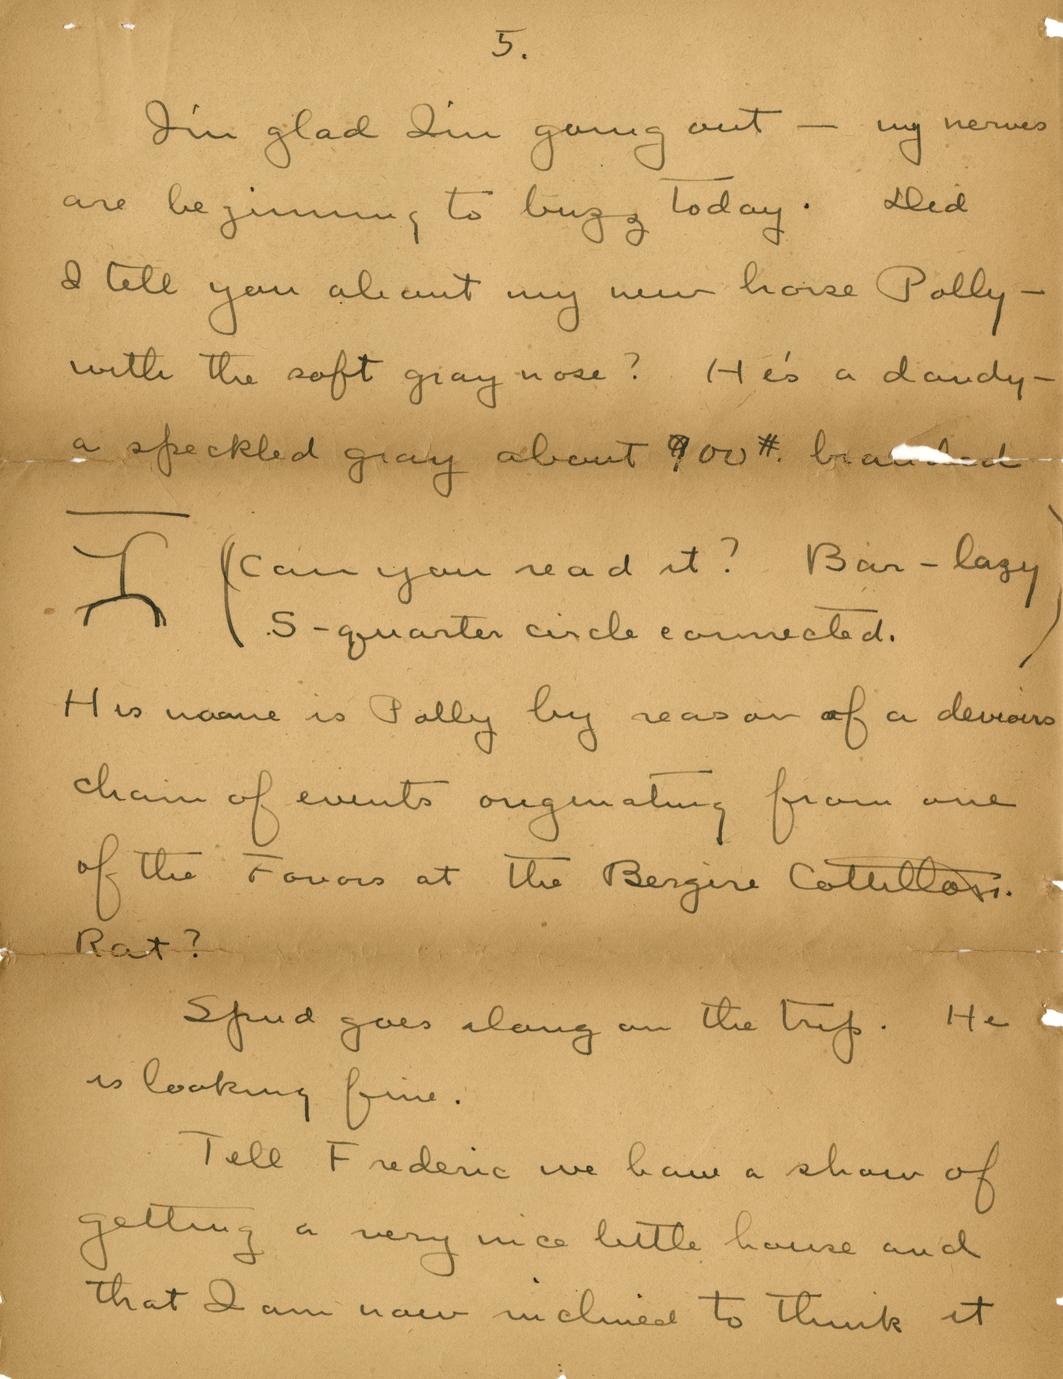 5.
I'm glad I'm going out — my nerves
are beginning to buzz today. Did
I tell you about my new horse Polly —
with the soft gray nose? He's a dandy —
a speckled gray about 900 #. branded
(Can you read it? Bar - lazy
S - quarter circle connected.)
His name is Polly by reason of a devious
chain of events originating from one
of the Favors at the Bergere Cotillion.
Rat?
Spud goes along on the trip. He
is looking fine.
Tell Frederic we have a show of
getting a very nice little house and
that I am now inclined to think it